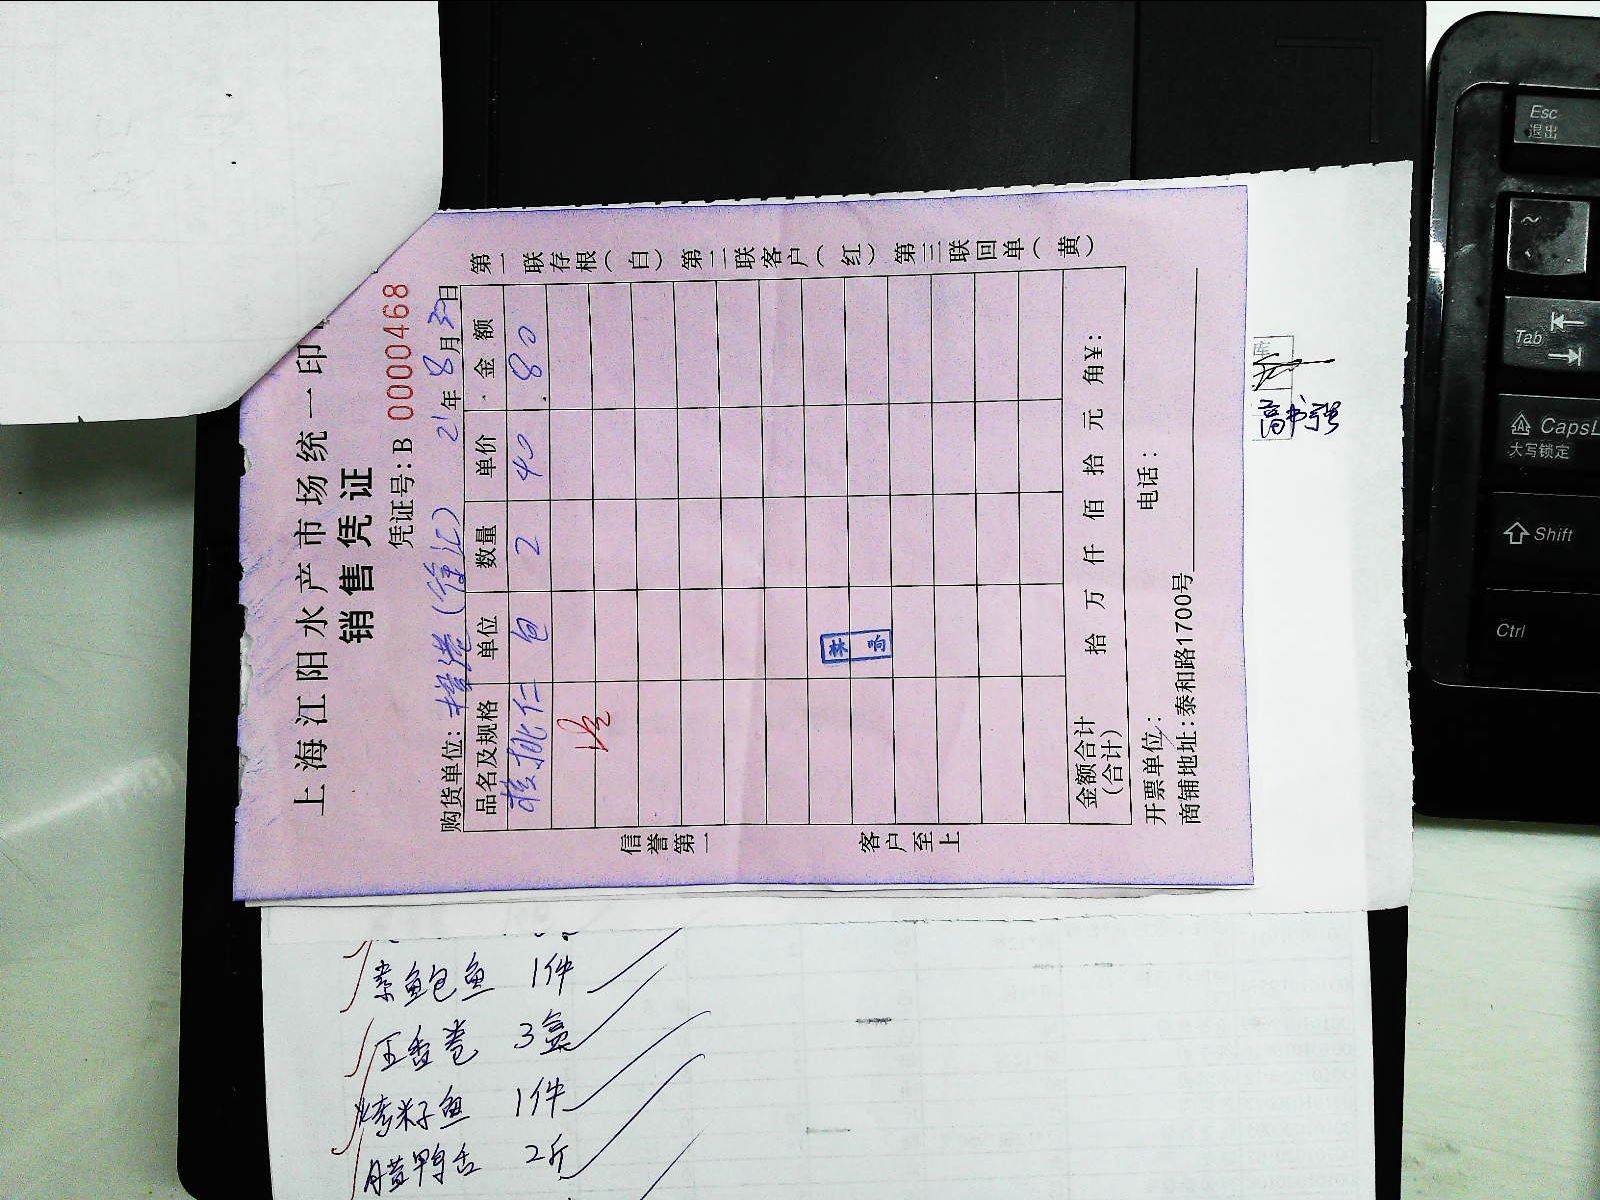 上海江阳水产市场统一印
销售凭证
凭证号: B 0000468
购货单位: (徐汇) 21年 8月 日
品名及规格 单位 数量 单价 金额
核桃仁 包 2 40 80
林响
金额合计
(合计) 拾 万 仟 佰 拾 元 角¥:
开票单位: 电话:
商铺地址: 泰和路1700号
第一联存根(白) 第二联客户(红) 第三联回单(黄)
信誉第一 客户至上
素鲍鱼 1件
五香卷 3盒
烤籽鱼 1件
腊鸭舌 2斤
库
高书强
Esc
退出
~
Tab
CapsL
大写锁定
Shift
Ctrl